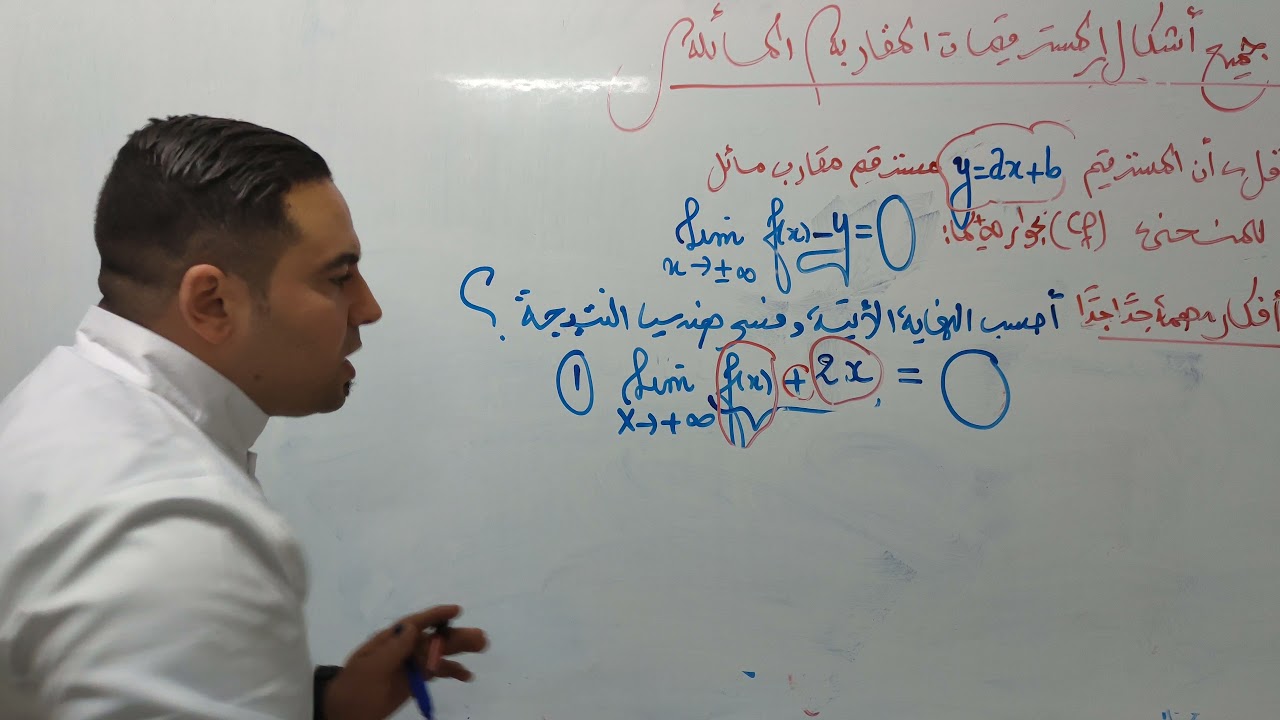 جميع أشكال المستقيمات المقاربة المائلة
نقول أن المستقيم y=ax+b مستقيم مقارب مائل
للمنحنى (Cf) بجوار ±∞ لما:
lim f(x)-y=0
x→±∞
أفكار مهمة جدًا جدًا أحسب النهاية الآتية وفسر هندسيا النتيجة ؟
① lim f(x)+2x = 0
x→+∞